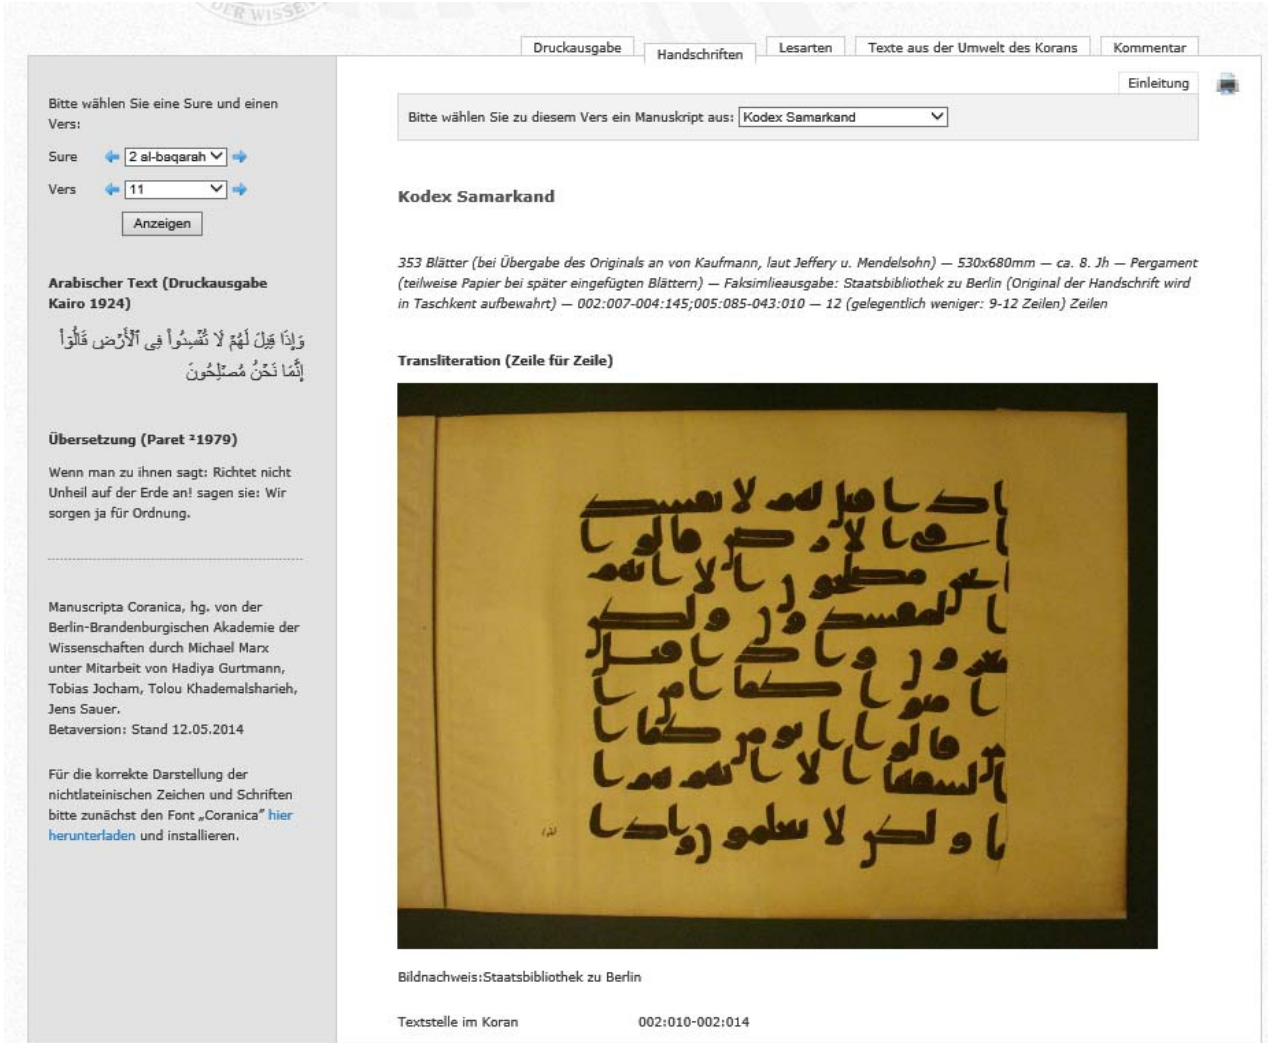 DER WISSE
Druckausgabe
Handschriften
Lesarten
Texte aus der Umwelt des Korans
Kommentar
Einleitung
Bitte wählen Sie eine Sure und einen
Vers:
Sure 2 al-baqarah
Vers 11
Anzeigen
Arabischer Text (Druckausgabe
Kairo 1924)
وَإِذَا قِيلَ لَهُمْ لَا تُفْسِدُواْ فِى ٱلْأَرْضِ قَالُوٓاْ
إِنَّمَا نَحْنُ مُصْلِحُونَ
Übersetzung (Paret ²1979)
Wenn man zu ihnen sagt: Richtet nicht
Unheil auf der Erde an! sagen sie: Wir
sorgen ja für Ordnung.
Manuscripta Coranica, hg. von der
Berlin-Brandenburgischen Akademie der
Wissenschaften durch Michael Marx
unter Mitarbeit von Hadiya Gurtmann,
Tobias Jocham, Tolou Khademalsharieh,
Jens Sauer.
Betaversion: Stand 12.05.2014
Für die korrekte Darstellung der
nichtlateinischen Zeichen und Schriften
bitte zunächst den Font „Coranica" hier
herunterladen und installieren.
Bitte wählen Sie zu diesem Vers ein Manuskript aus: Kodex Samarkand
Kodex Samarkand
353 Blätter (bei Übergabe des Originals an von Kaufmann, laut Jeffery u. Mendelsohn) — 530x680mm — ca. 8. Jh — Pergament
(teilweise Papier bei später eingefügten Blättern) — Faksimlieausgabe: Staatsbibliothek zu Berlin (Original der Handschrift wird
in Taschkent aufbewahrt) — 002:007-004:145;005:085-043:010 — 12 (gelegentlich weniger: 9-12 Zeilen) Zeilen
Transliteration (Zeile für Zeile)
Bildnachweis:Staatsbibliothek zu Berlin
Textstelle im Koran 002:010-002:014